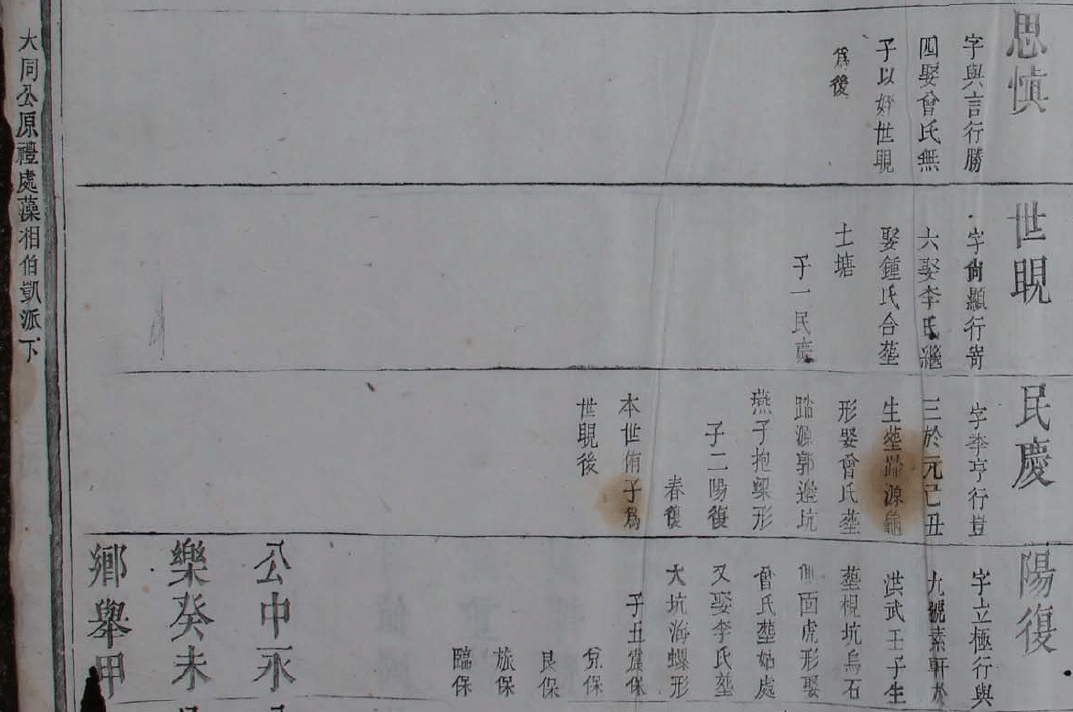 思慎
字與言行勝
四娶曾氏無
子以姪世覞
爲後
世覞
字尙顯行嵜
六娶李氏繼
娶鍾氏合塟
土塘
子一民慶
民慶
字季亨行豈
三於元己丑
生塟源龜
形娶曾氏塟
踏源郭邊坑
燕子抱樑形
子二陽復
春復
本世侑子爲
世覞後
陽復
字立極行與
九號素軒於
洪武壬子生
塟梘坑烏石
側面虎形娶
曾氏塟姑處
又娶李氏塟
大坑海螺形
子五震保
兌保
艮保
旅保
臨保
公中永
樂癸未
鄉舉甲
大同公原禮處藻相伯凱派下